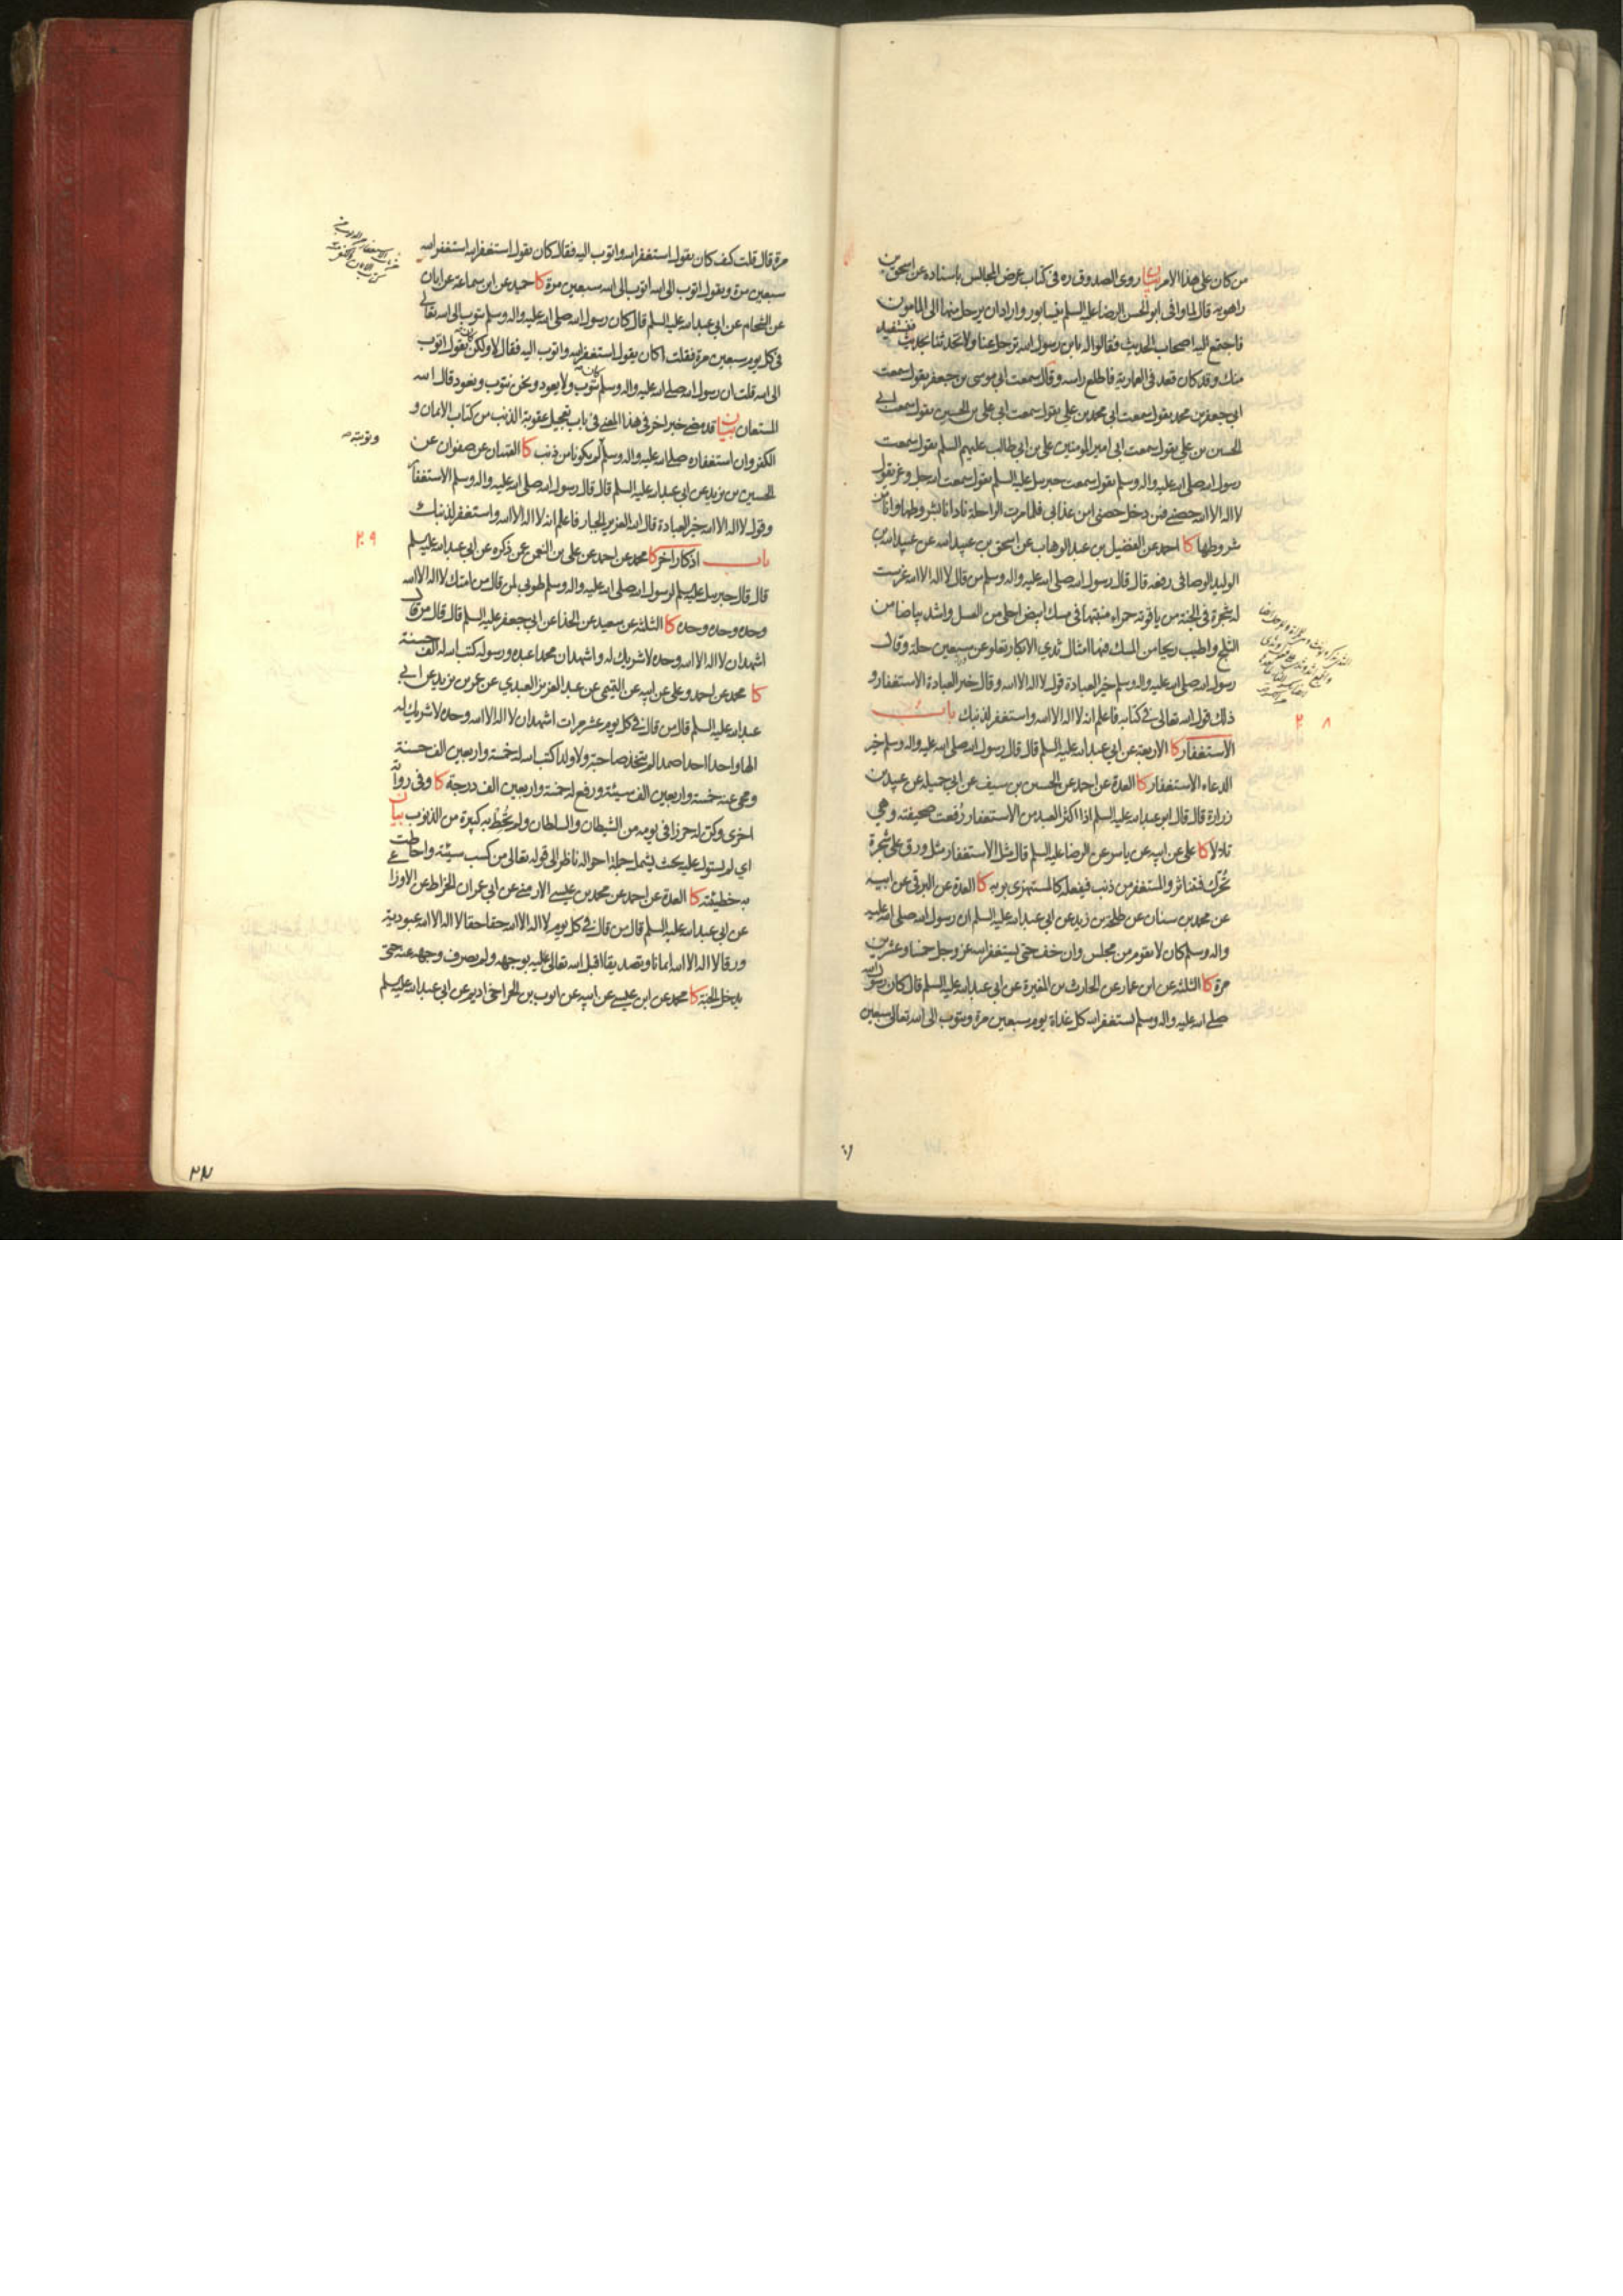 من كان على هذا الامر بيان روى الصدوق ره فى كتاب عرض المجالس باسناده عن اسحق بن
راهويه قال لما وافى ابو الحسن الرضا عليه السلم نيسابور واراد ان يرحل منها الى المامون
فاجتمع اليه اصحاب الحديث فقالوا له يا بن رسول الله ترحل عنا ولا تحدثنا بحديث فنستفيد
منك وقد كان قعد فى العمارية فاطلع راسه وقال سمعت ابى موسى بن جعفر يقول سمعت
ابى جعفر بن محمد يقول سمعت ابى محمد بن على يقول سمعت ابى على بن الحسين يقول سمعت ابى
الحسين بن على يقول سمعت ابى امير المومنين على بن ابى طالب عليهم السلم يقول سمعت
رسول الله صلى الله عليه واله وسلم يقول سمعت جبرئيل عليه السلم يقول سمعت الله جل وعز يقول
لا اله الا الله حصنى فمن دخل حصنى امن عذابى فلما مرت الراحلة نادانا بشروطها وانا من
شروطها كا احمد عن الفضيل بن عبد الوهاب عن اسحق بن عبيد الله عن عبيد الله بن
الوليد الوصافى رفعه قال قال رسول الله صلى الله عليه واله وسلم من قال لا اله الا الله غرست
له شجرة فى الجنة من ياقوتة حمراء منبتها فى مسك ابيض احلى من العسل واشد بياضا من
الثلج واطيب ريحا من المسك فيها امثال ثدى الابكار تعلو عن سبعين حلة وقال
رسول الله صلى الله عليه واله وسلم خير العبادة قول لا اله الا الله وقال خير العبادة الاستغفار و
ذلك قول الله تعالى فى كتابه فاعلم انه لا اله الا الله واستغفر لذنبك باب
٢٠٨
الاستغفار كا الاربعة عن ابى عبد الله عليه السلم قال قال رسول الله صلى الله عليه واله وسلم خير
الدعاء الاستغفار كا العدة عن احمد عن الحسين بن سيف عن ابى جميلة عن عبيد بن
زرارة قال قال ابو عبد الله عليه السلم اذا اكثر العبد من الاستغفار رفعت صحيفته وهى
تلالا كا على عن ابيه عن ياسر عن الرضا عليه السلم قال مثل الاستغفار مثل ورق على شجرة
تحرك فتناثر والمستغفر من ذنب فيفعله كالمستهزى بربه كا العدة عن البرقى عن ابيه
عن محمد بن سنان عن طلحة بن زيد عن ابى عبد الله عليه السلم ان رسول الله صلى الله عليه
واله وسلم كان لا يقوم من مجلس وان خف حتى يستغفر الله عز وجل خمسا وعشرين
مرة كا الثلثة عن ابن عمار عن الحارث بن المغيرة عن ابى عبد الله عليه السلم قال كان رسول الله
صلى الله عليه واله وسلم يستغفر الله كل غداة يوم سبعين مرة ويتوب الى الله تعالى سبعين
مرة قال قلت كيف كان يقول استغفر الله واتوب اليه فقال كان يقول استغفر الله استغفر الله
سبعين مرة ويقول اتوب الى الله اتوب الى الله سبعين مرة كا حميد عن ابن سماعة عن ابان
عن الشحام عن ابى عبد الله عليه السلم قال كان رسول الله صلى الله عليه واله وسلم يتوب الى الله تعالى
فى كل يوم سبعين مرة فقلت اكان يقول استغفر الله واتوب اليه فقال لا ولكن كان يقول اتوب
الى الله قلت ان رسول الله صلى الله عليه واله وسلم كان يتوب ولا يعود ونحن نتوب ونعود قال الله
المستعان بيان قد مضى خبر اخر فى هذا المعنى فى باب تعجيل عقوبة الذنب من كتاب الايمان و
وتوبته صح
الكفر وان استغفاره صلى الله عليه واله وسلم لم يكونا من ذنب كا القميان عن صفوان عن
الحسين بن يزيد عن ابى عبد الله عليه السلم قال قال رسول الله صلى الله عليه واله وسلم الاستغفار
وقول لا اله الا الله خير العبادة قال الله العزيز الجبار فاعلم انه لا اله الا الله واستغفر لذنبك
٢٠٩
باب اذكار اخر كا محمد عن احمد عن على بن النعمن عمن ذكره عن ابى عبد الله عليه السلم
قال قال جبرئيل عليه السلم لرسول الله صلى الله عليه واله وسلم طوبى لمن قال من امتك لا اله الا الله
وحده وحده وحده كا الثلثة عن سعيد عن الحذا عن ابى جعفر عليه السلم قال قال من قال
اشهد ان لا اله الا الله وحده لا شريك له واشهد ان محمدا عبده ورسوله كتب الله له الف حسنة
كا محمد عن احمد وعلى عن ابيه عن التميمى عن عبد العزيز العبدى عن عمر بن يزيد عن ابى
عبد الله عليه السلم قال من قال فى كل يوم عشر مرات اشهد ان لا اله الا الله وحده لا شريك له
الها واحدا احدا صمدا لم يتخذ صاحبة ولا ولدا كتب الله له خمسة واربعين الف حسنة
ومحى عنه خمسة واربعين الف سيئة ورفع له خمسة واربعين الف درجة كا وفى رواية
اخرى وكن له حرزا فى يومه من الشيطان والسلطان ولم تحط به كبيرة من الذنوب بيان
اى لم تستول عليه بحيث يشمل جملة احواله ناظر الى قوله تعالى من كسب سيئة واحاطت
به خطيئته كا العدة عن احمد عن محمد بن عيسى الارمنى عن ابى عمران الخراط عن الاوزاعى
عن ابى عبد الله عليه السلم قال من قال فى كل يوم لا اله الا الله حقا حقا لا اله الا الله عبودية
ورقا لا اله الا الله ايمانا وتصديقا اقبل الله تعالى عليه بوجهه ولم يصرف وجهه عنه حتى
يدخل الجنة كا محمد عن ابن عيسى عن ابيه عن ايوب بن الحر اخى اديم عن ابى عبد الله عليه السلم